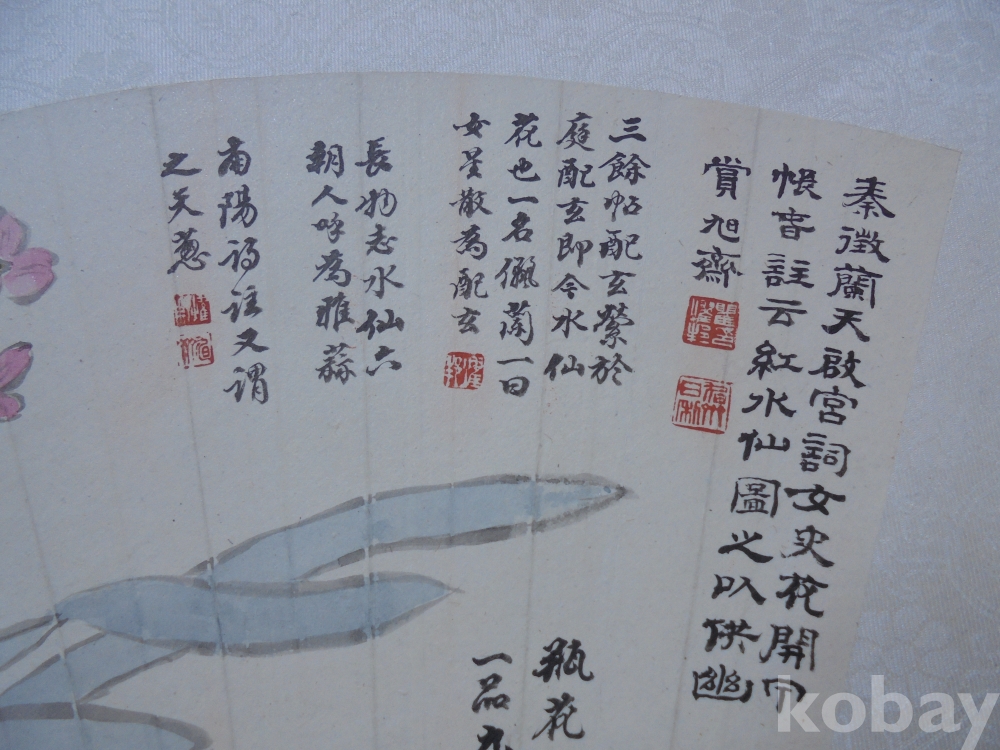 秦徵蘭天啟宮詞女史花開向
帳音註云紅水仙圖之以供幽
賞旭齋
三餘帖配玄縈於
庭配玄即今水仙
花也一名儷蘭一曰
女星散為配玄
長物志水仙六
朝人呼為雅蒜
南陽詩註又謂
之天蔥
瓶花
一品
kobay